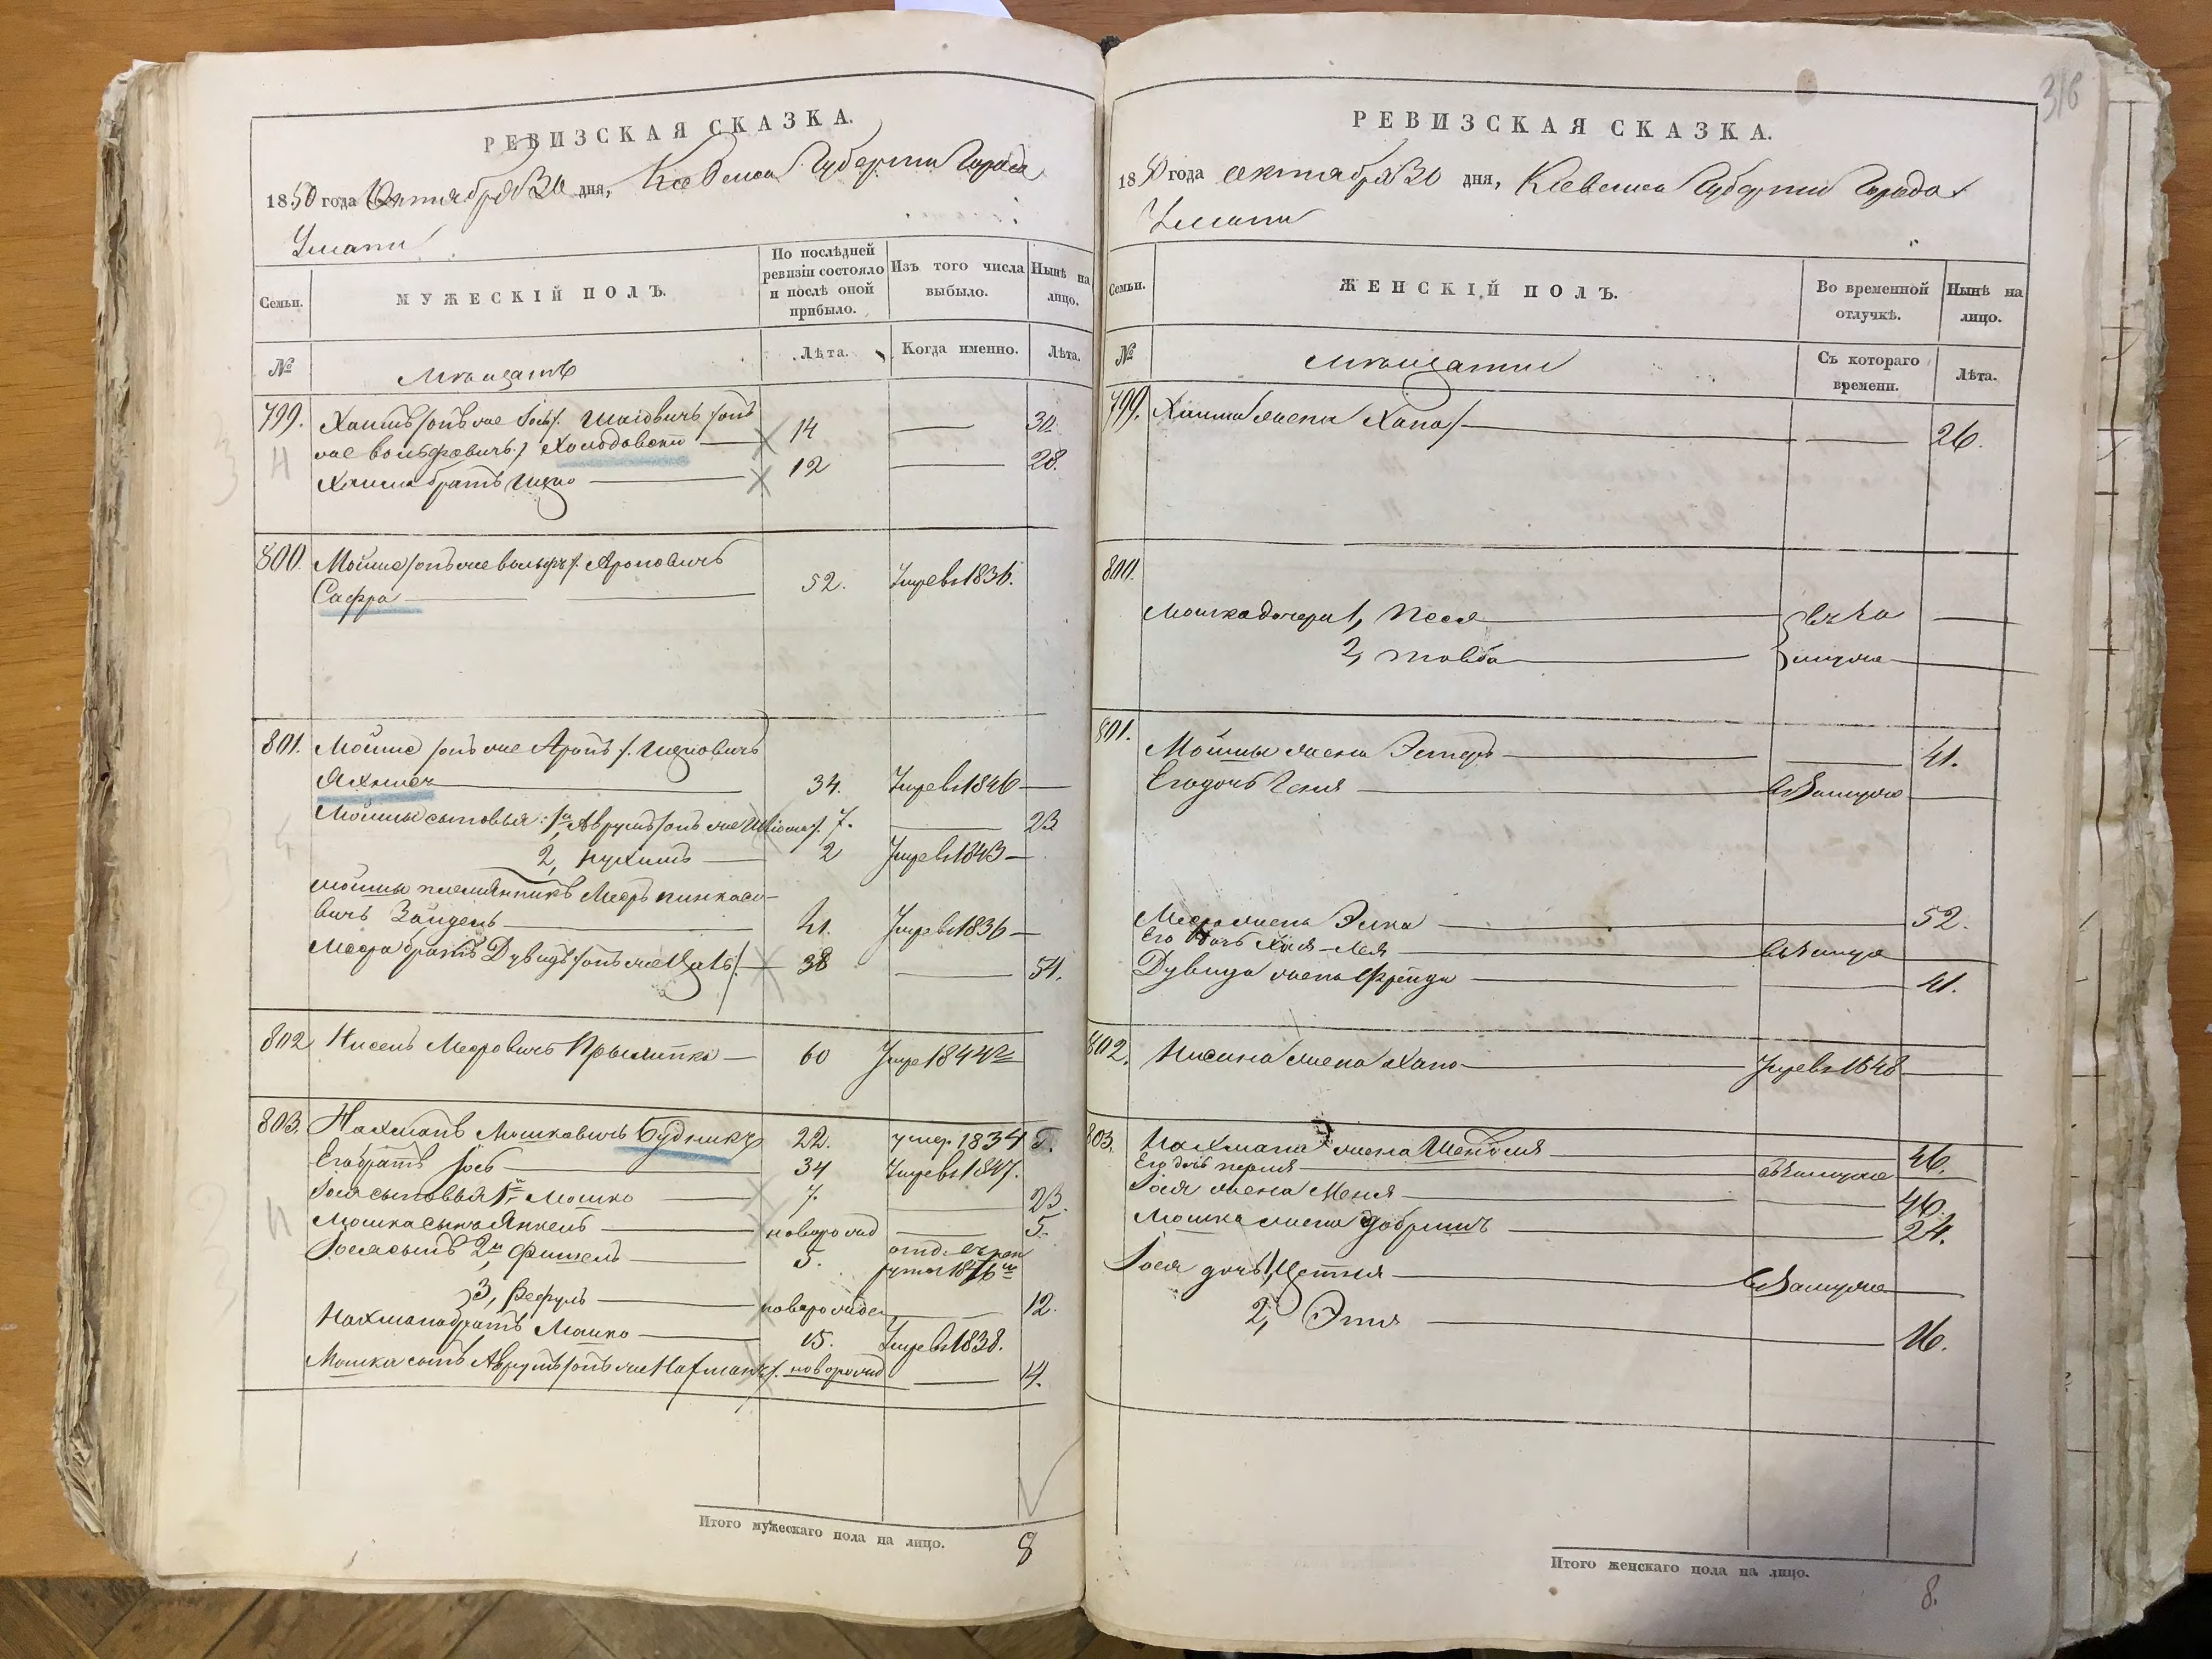 РЕВИЗСКАЯ СКАЗКА.
1850 года Октября 30 дня, Кіевской Губерніи Города
Умани
Семьи.
МУЖЕСКІЙ ПОЛЪ.
По послѣдней ревизіи состояло и послѣ оной прибыло.
Изъ того числа выбыло.
Нынѣ на лицо.
№
Мѣщане
Лѣта.
Когда именно.
Лѣта.
799. Хаимъ /онъ же Іось/ Шаевичъ /онъ
же Вольфовичъ/ Холодовскій 14 30.
Хаима братъ Ицко 12 28.
800. Мойше /онъ же Вольфъ/ Ароновичъ
Сафра 52. Умре в 1836.
801. Мойше /онъ же Аронъ/ Ицковичъ
34. Умре в 1846
Мойши сыновья: 1й Аврумъ /онъ же 7. 23
2, Нухимъ 2 Умре в 1843
Мойши племянникъ Мееръ Пинкасо-
вичъ Зайдель 41. Умре в 1836
Меера братъ Дувидъ /онъ же 38 54.
802 Нисень Мееровичъ 60 Умре 1844
803. Нахманъ Мошковичъ Будникъ 22. умер. 1834
Его братъ Іось 34 Умре в 1847.
Іося сыновья 1й Мошко 7. 23.
Мошка сынъ Янкель новорожд 5.
Іося сынъ 2й Фишель 5. отд. въ рек
руты 1846
3, новорожден 12.
Нахмана братъ Мошко 15. Умре в 1838.
Мошка сынъ Аврумъ /онъ же Нахманъ/ новорожд 4.
Итого мужескаго пола на лицо. 8
318
РЕВИЗСКАЯ СКАЗКА.
1850 года октября 30 дня, Кіевской Губерніи Города
Умани
Семьи.
ЖЕНСКІЙ ПОЛЪ.
Во временной отлучкѣ.
Нынѣ на лицо.
№
мѣщанки
Съ котораго времени.
Лѣта.
799. Хаима жена Хана 26.
800.
Мошка дочери 1, Песя въ За
2, Товба мужѣ
801.
Мойши жена Эстеръ 41.
Его дочь Геня въ Замужѣ
Меера жена Элка 52.
Его дочь Хая-Лея въ Замуже
Дувида жена Фрейда 41.
802. Нисина жена Хана Умре в 1848
803. Нахмана жена Шейндля 46.
Его дочь Перля въ Замужѣ
Іося жена Меня 46.
Мошка жена Добришъ 24.
Іося дочь 1, въ Замужѣ
2, Этля 16.
Итого женскаго пола на лицо.
8.